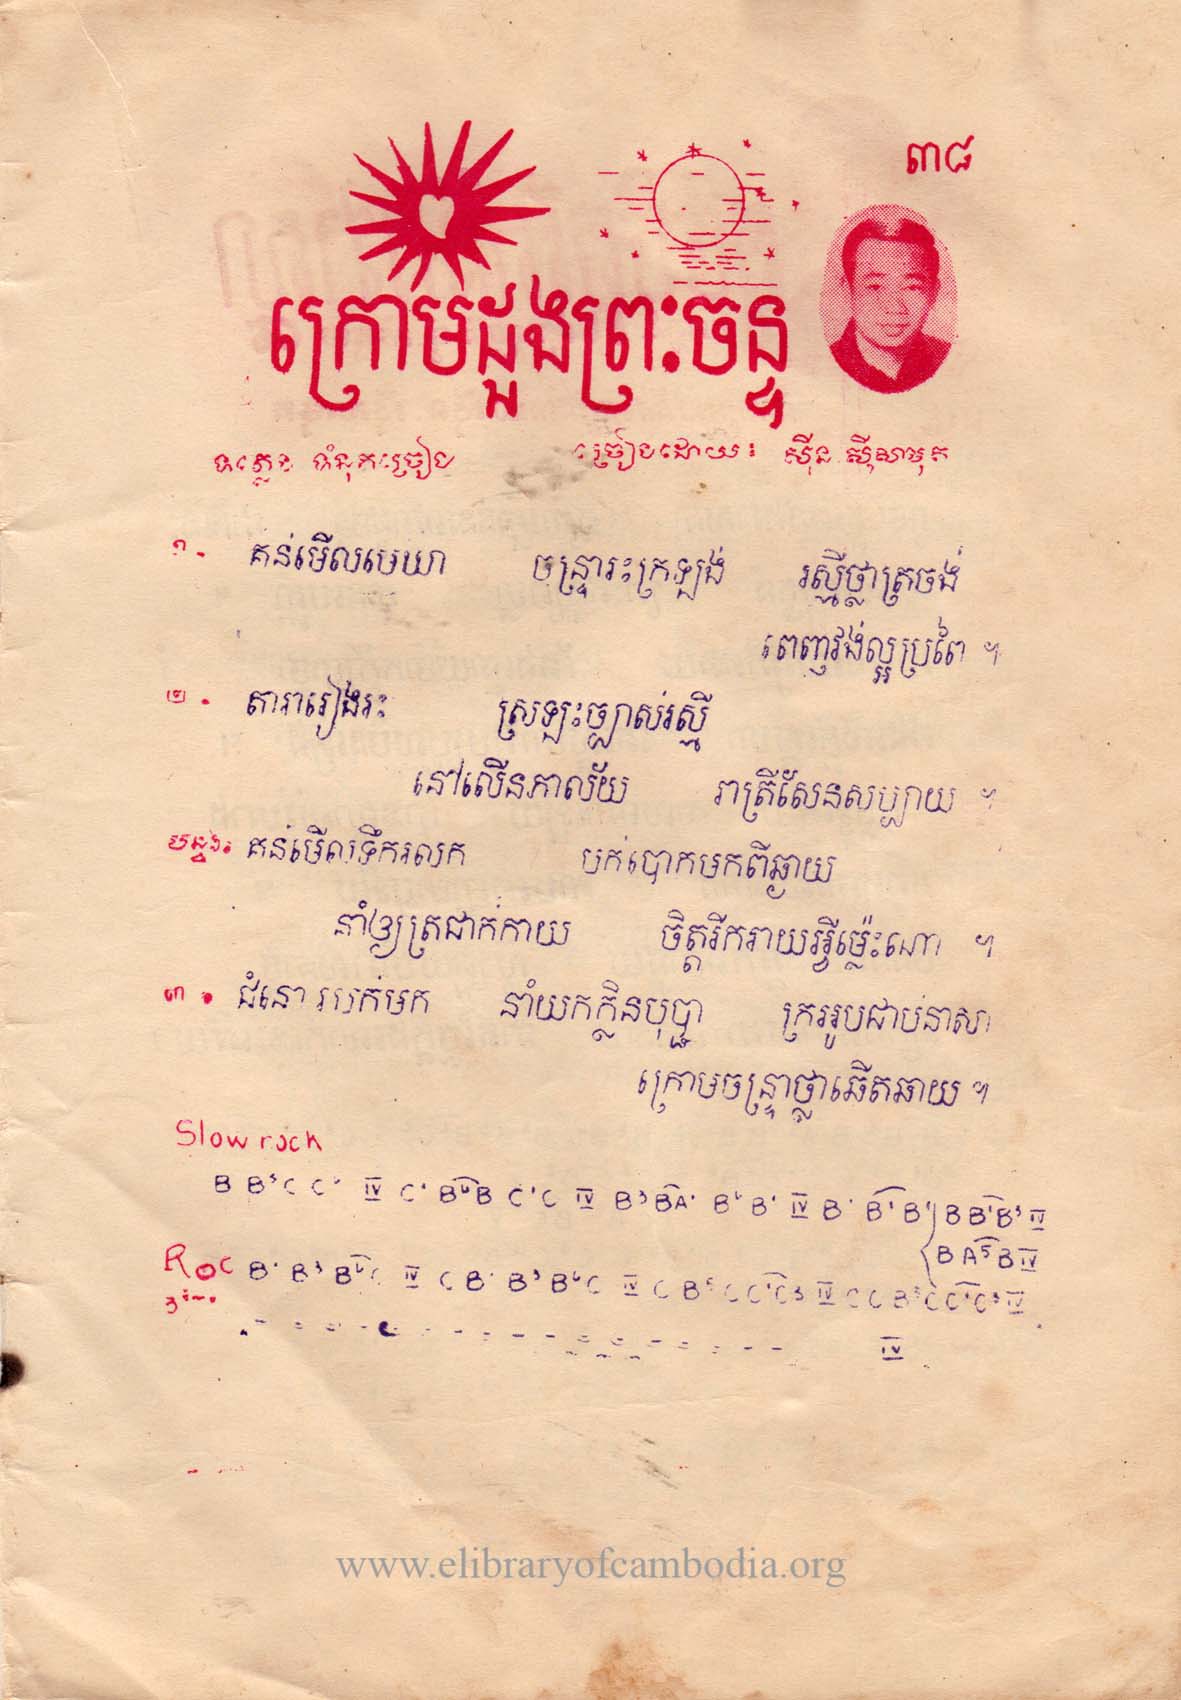 ៣៨
ក្រោមដួងព្រះចន្ទ
បទភ្លេង ទំនុកច្រៀង ច្រៀងដោយ៖ ស៊ីន ស៊ីសាមុត
១- គន់មើលមេឃា ចន្ទ្រារះក្រឡង់ រស្មីថ្លាត្រចង់
ពេញវង់ល្អប្រពៃ ។
២- តារារៀងរះ ស្រឡះច្បាស់រស្មី
នៅលើនភាល័យ រាត្រីសែនសប្បាយ ។
បន្ទរ៖ គន់មើលទឹករលក បក់បោកមកពីឆ្ងាយ
នាំឲ្យត្រជាក់កាយ ចិត្តរីករាយអ្វីម៉្លេះណា ។
៣- ជំនោរបក់មក នាំយកក្លិនបុប្ផា ក្រអូបជាប់នាសា
ក្រោមចន្ទ្រាថ្លាឆើតឆាយ ។
Slow rock
B B³ C C · IV C · B⁶ B C · C IV B³ BA · B⁶ B · IV B · B · B · B B · B³ IV
B A⁵ B IV
Roc B · B³ B⁶ C IV C B · B³ B⁶ C IV C B⁶ C C · C³ IV C C B³ C C · C³ IV
IV
www.elibraryofcambodia.org